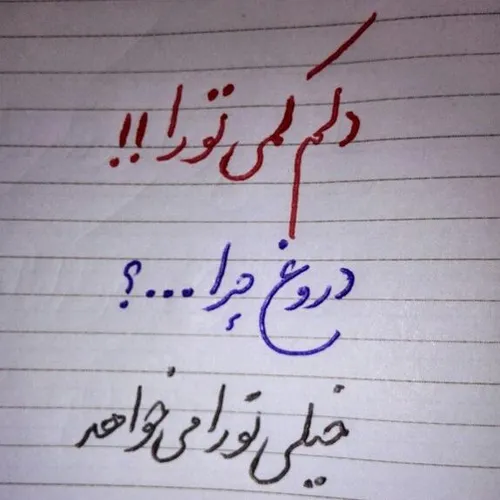 دلم کمی تو را !!
دروغ چرا...؟
خیلی تو را می خواهد